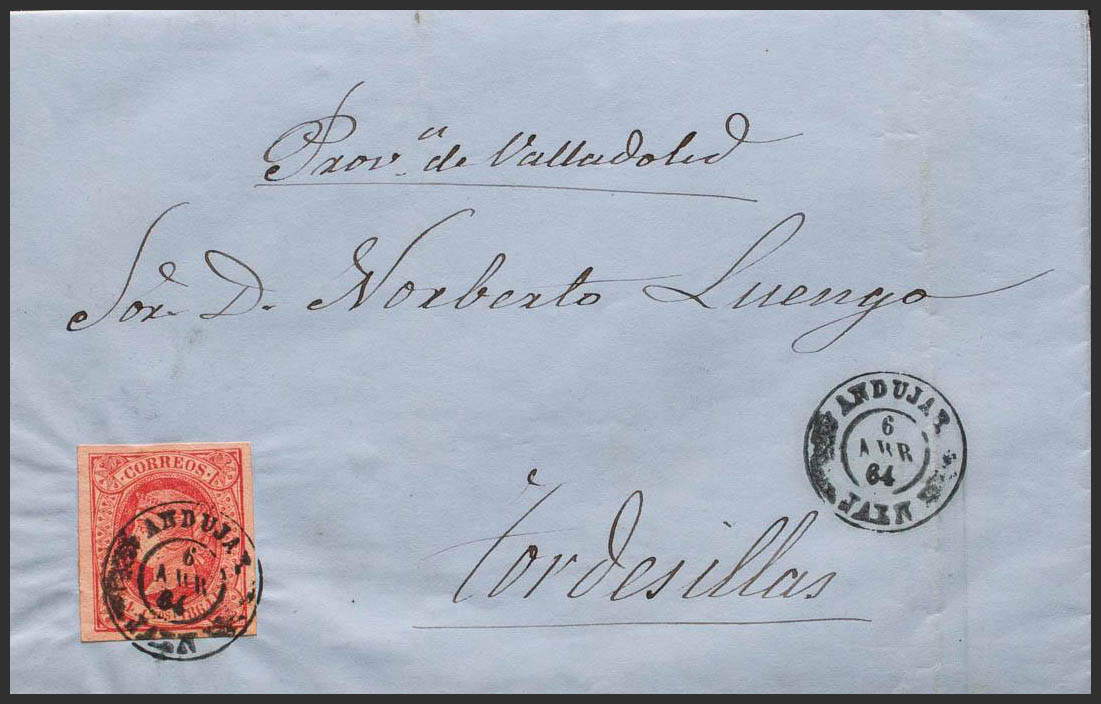 Prov.ª de Valladolid
Sor. D. Norberto Luengo
Tordesillas
ANDUJAR
6
ABR
64
JAEN
CORREOS
ANDUJAR
6
ABR
64